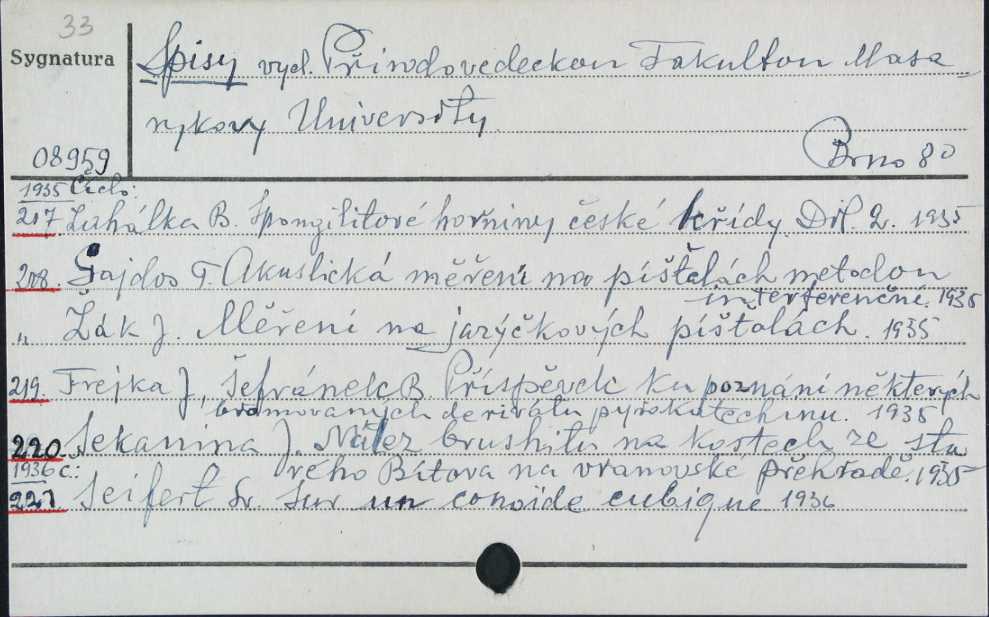 33
Sygnatura
Spisy vycl. Přirodovedeckon Fakulton Masa
rykovy University.
08959
Brno 80
1935 Čislo:
217. Zahálka B. Spongilitové horniny české křídy. Dil. 2. 1935
218. Gajdos T. Akustická měření na píštălách metodon
interferenční. 1935
" Žák J. Měření na jazýčkových píšťalách. 1935
219. Frejka J., Šefránek B. Příspěvek ku poznání některých
bromovaných derivátu pyrokatechinu. 1935
220. Sekanina J. Nález brushitu na kostech ze sta
1936 c: rého Bítova na vranovské přehradě. 1935
221. Seifert Sr. Sur un conoide cubique 1936